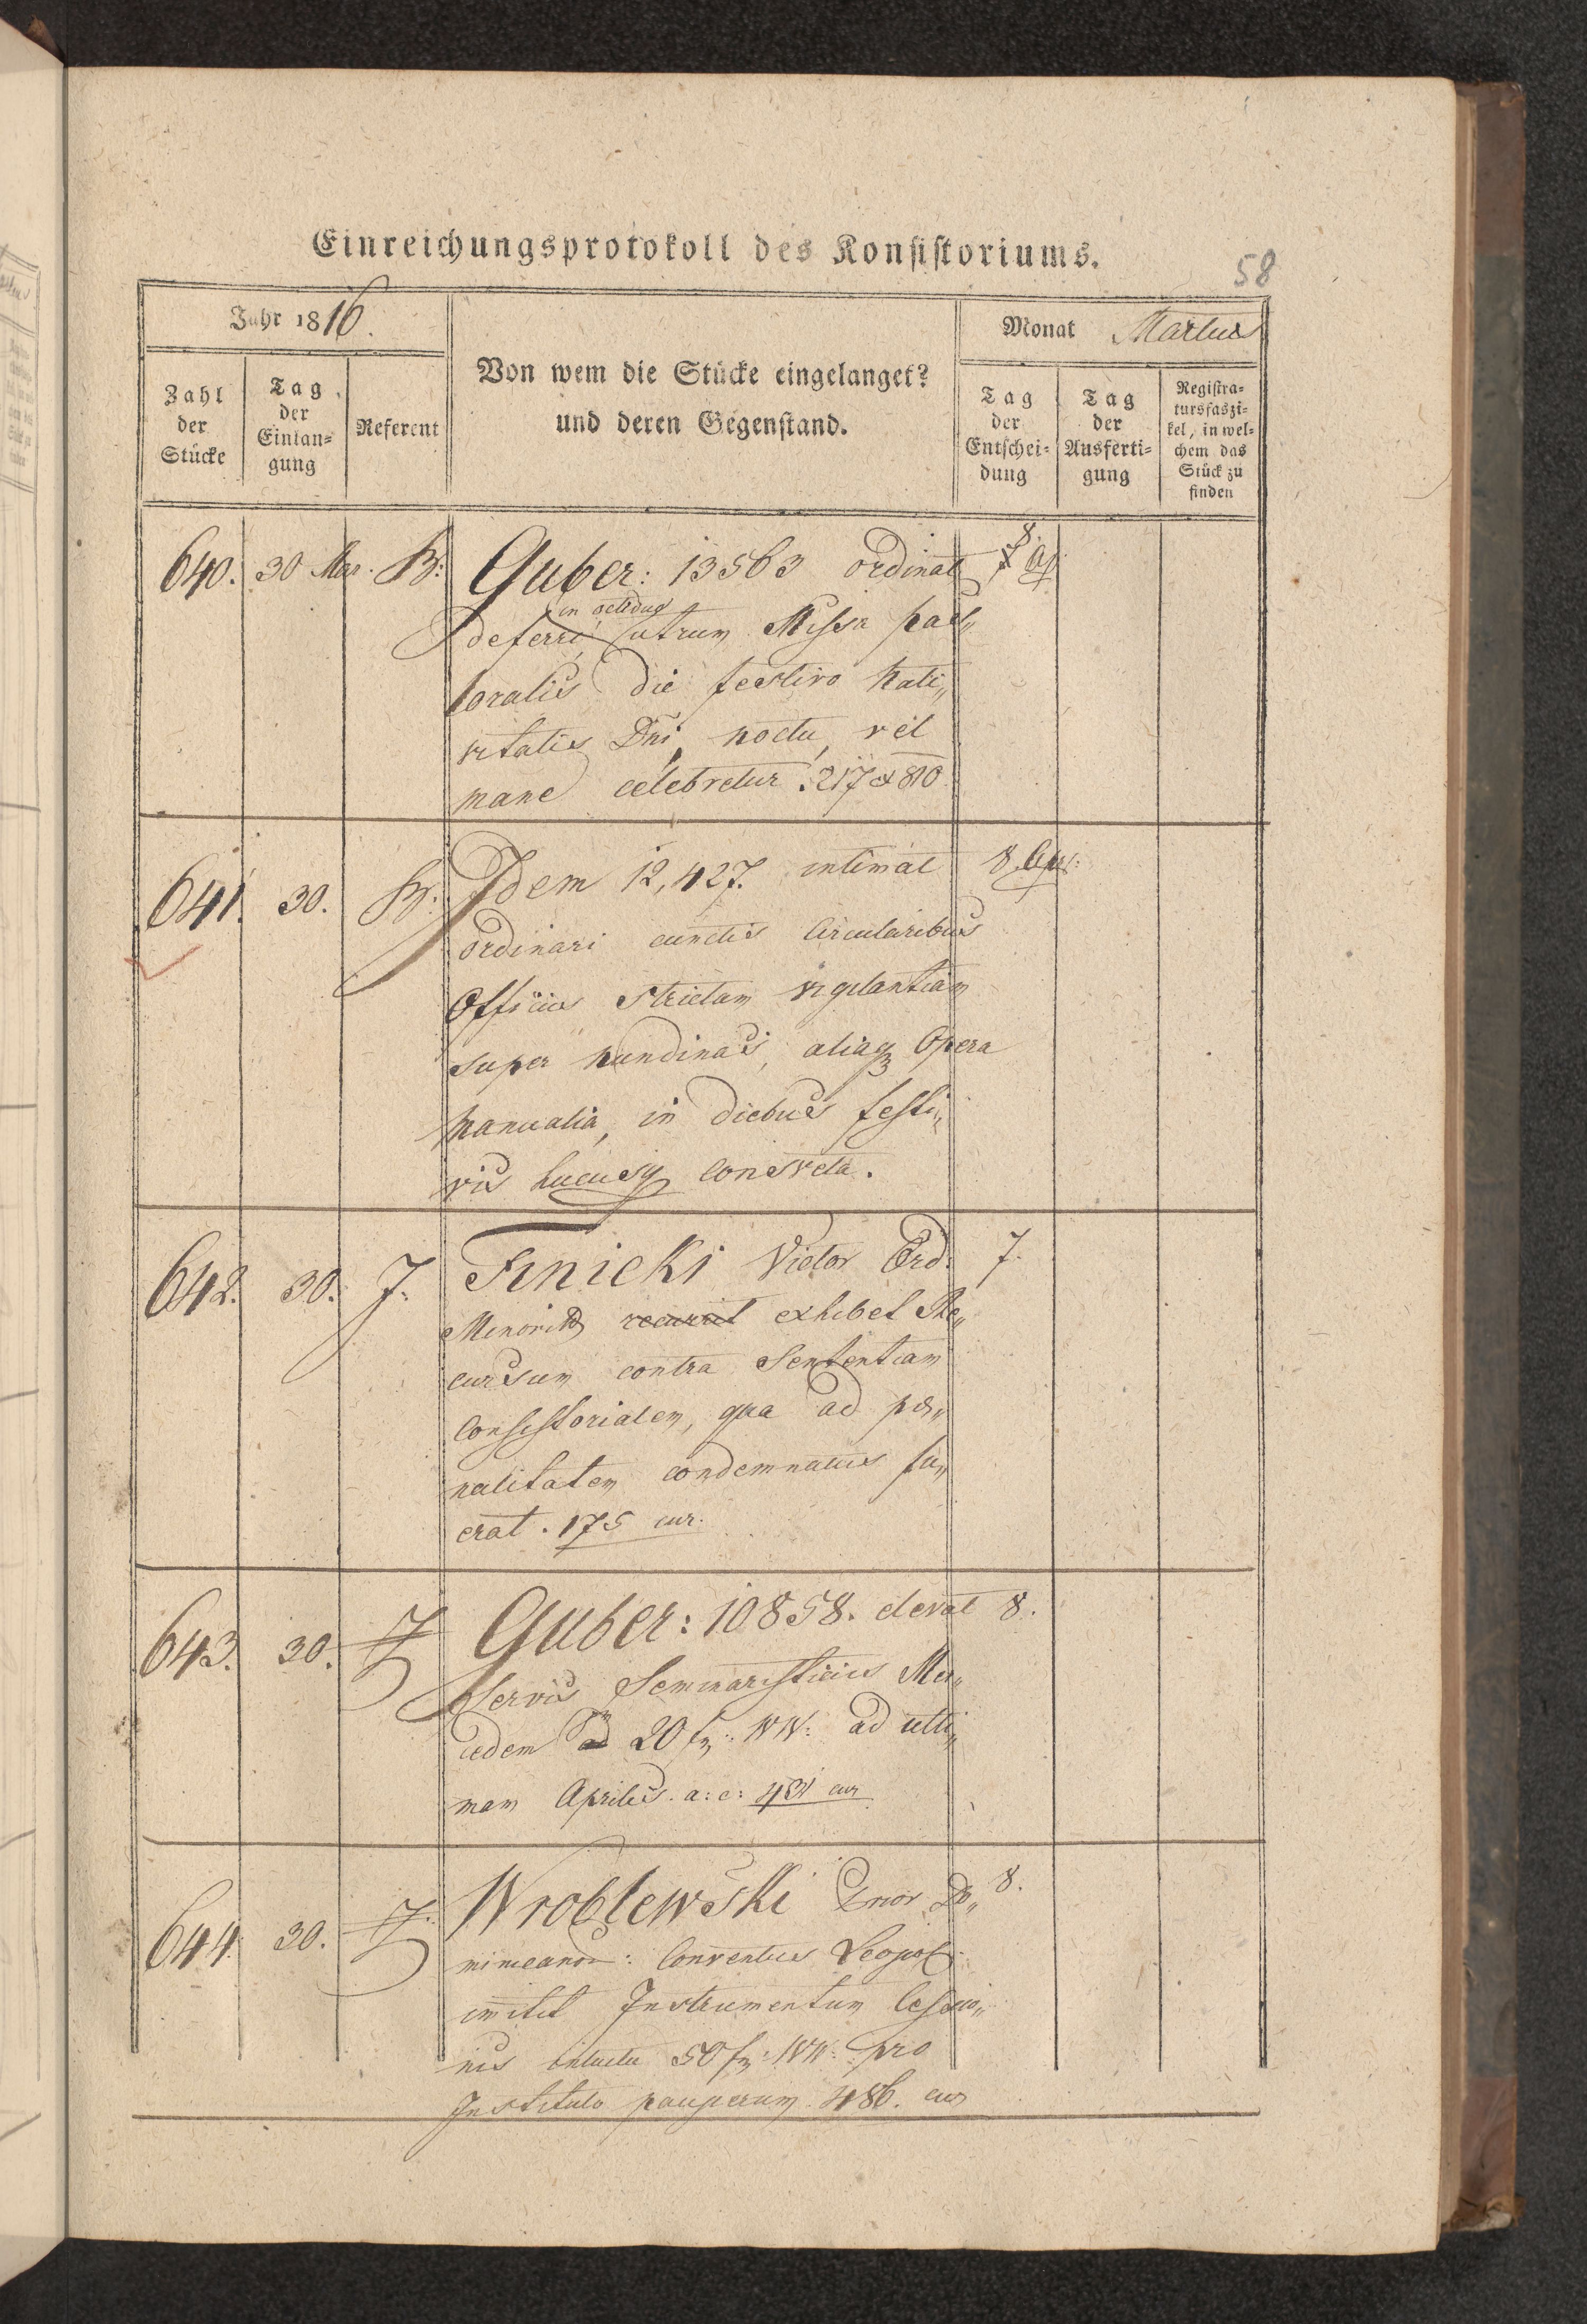 Einreichungsprotokoll des Konsistoriums.
58
Jahr 1816.
Monat Martius
Von wem die Stücke eingelanget?
und deren Gegenstand.
Zahl
der
Stücke
Tag
der
Einlan=
gung
Referent
Tag
der
Entschei=
dung
Tag
der
Ausferti=
gung
Registra=
tursfaszi=
kel, in wel=
chem das
Stück zu
finden
640. 30 Mar. B: Guber: 13563 ordinat 8
in octiduo
deferri, utrum Missa pas„
toralis die festivo Nati„
vitatis Dni, noctu, vel
mane celebretur. 217 & 810
641. 30. B: Idem 12,427. intimat 8. Apr:
ordinari cunctis Circularibus
Officiis strictam vigilantiam
super nundinas, aliaq Opera
manualia, in diebus festi„
vis hucusq consveta.
642. 30. J. Finicki Victor Ord. 7.
Minorit recurrit exhibet Re„
cursum contra Sententiam
Consistorialem, qua ad pœ„
nalitatem condemnatus fu„
erat. 175 cur.
643. 30. J Guber: 10858. elevat 8.
Servis Seminaristicis Mer„
cedem 20 f WW: ad ulti„
mam Aprilis. a: c: 431 cur
644. 30. J. Wroblewski Prior Do„ 8.
minicanor: Conventus Leopol:
imittit Instrumentum Cessio„
nis intuitu 50 f: WW: pro
Instituto pauperum. 486. cur